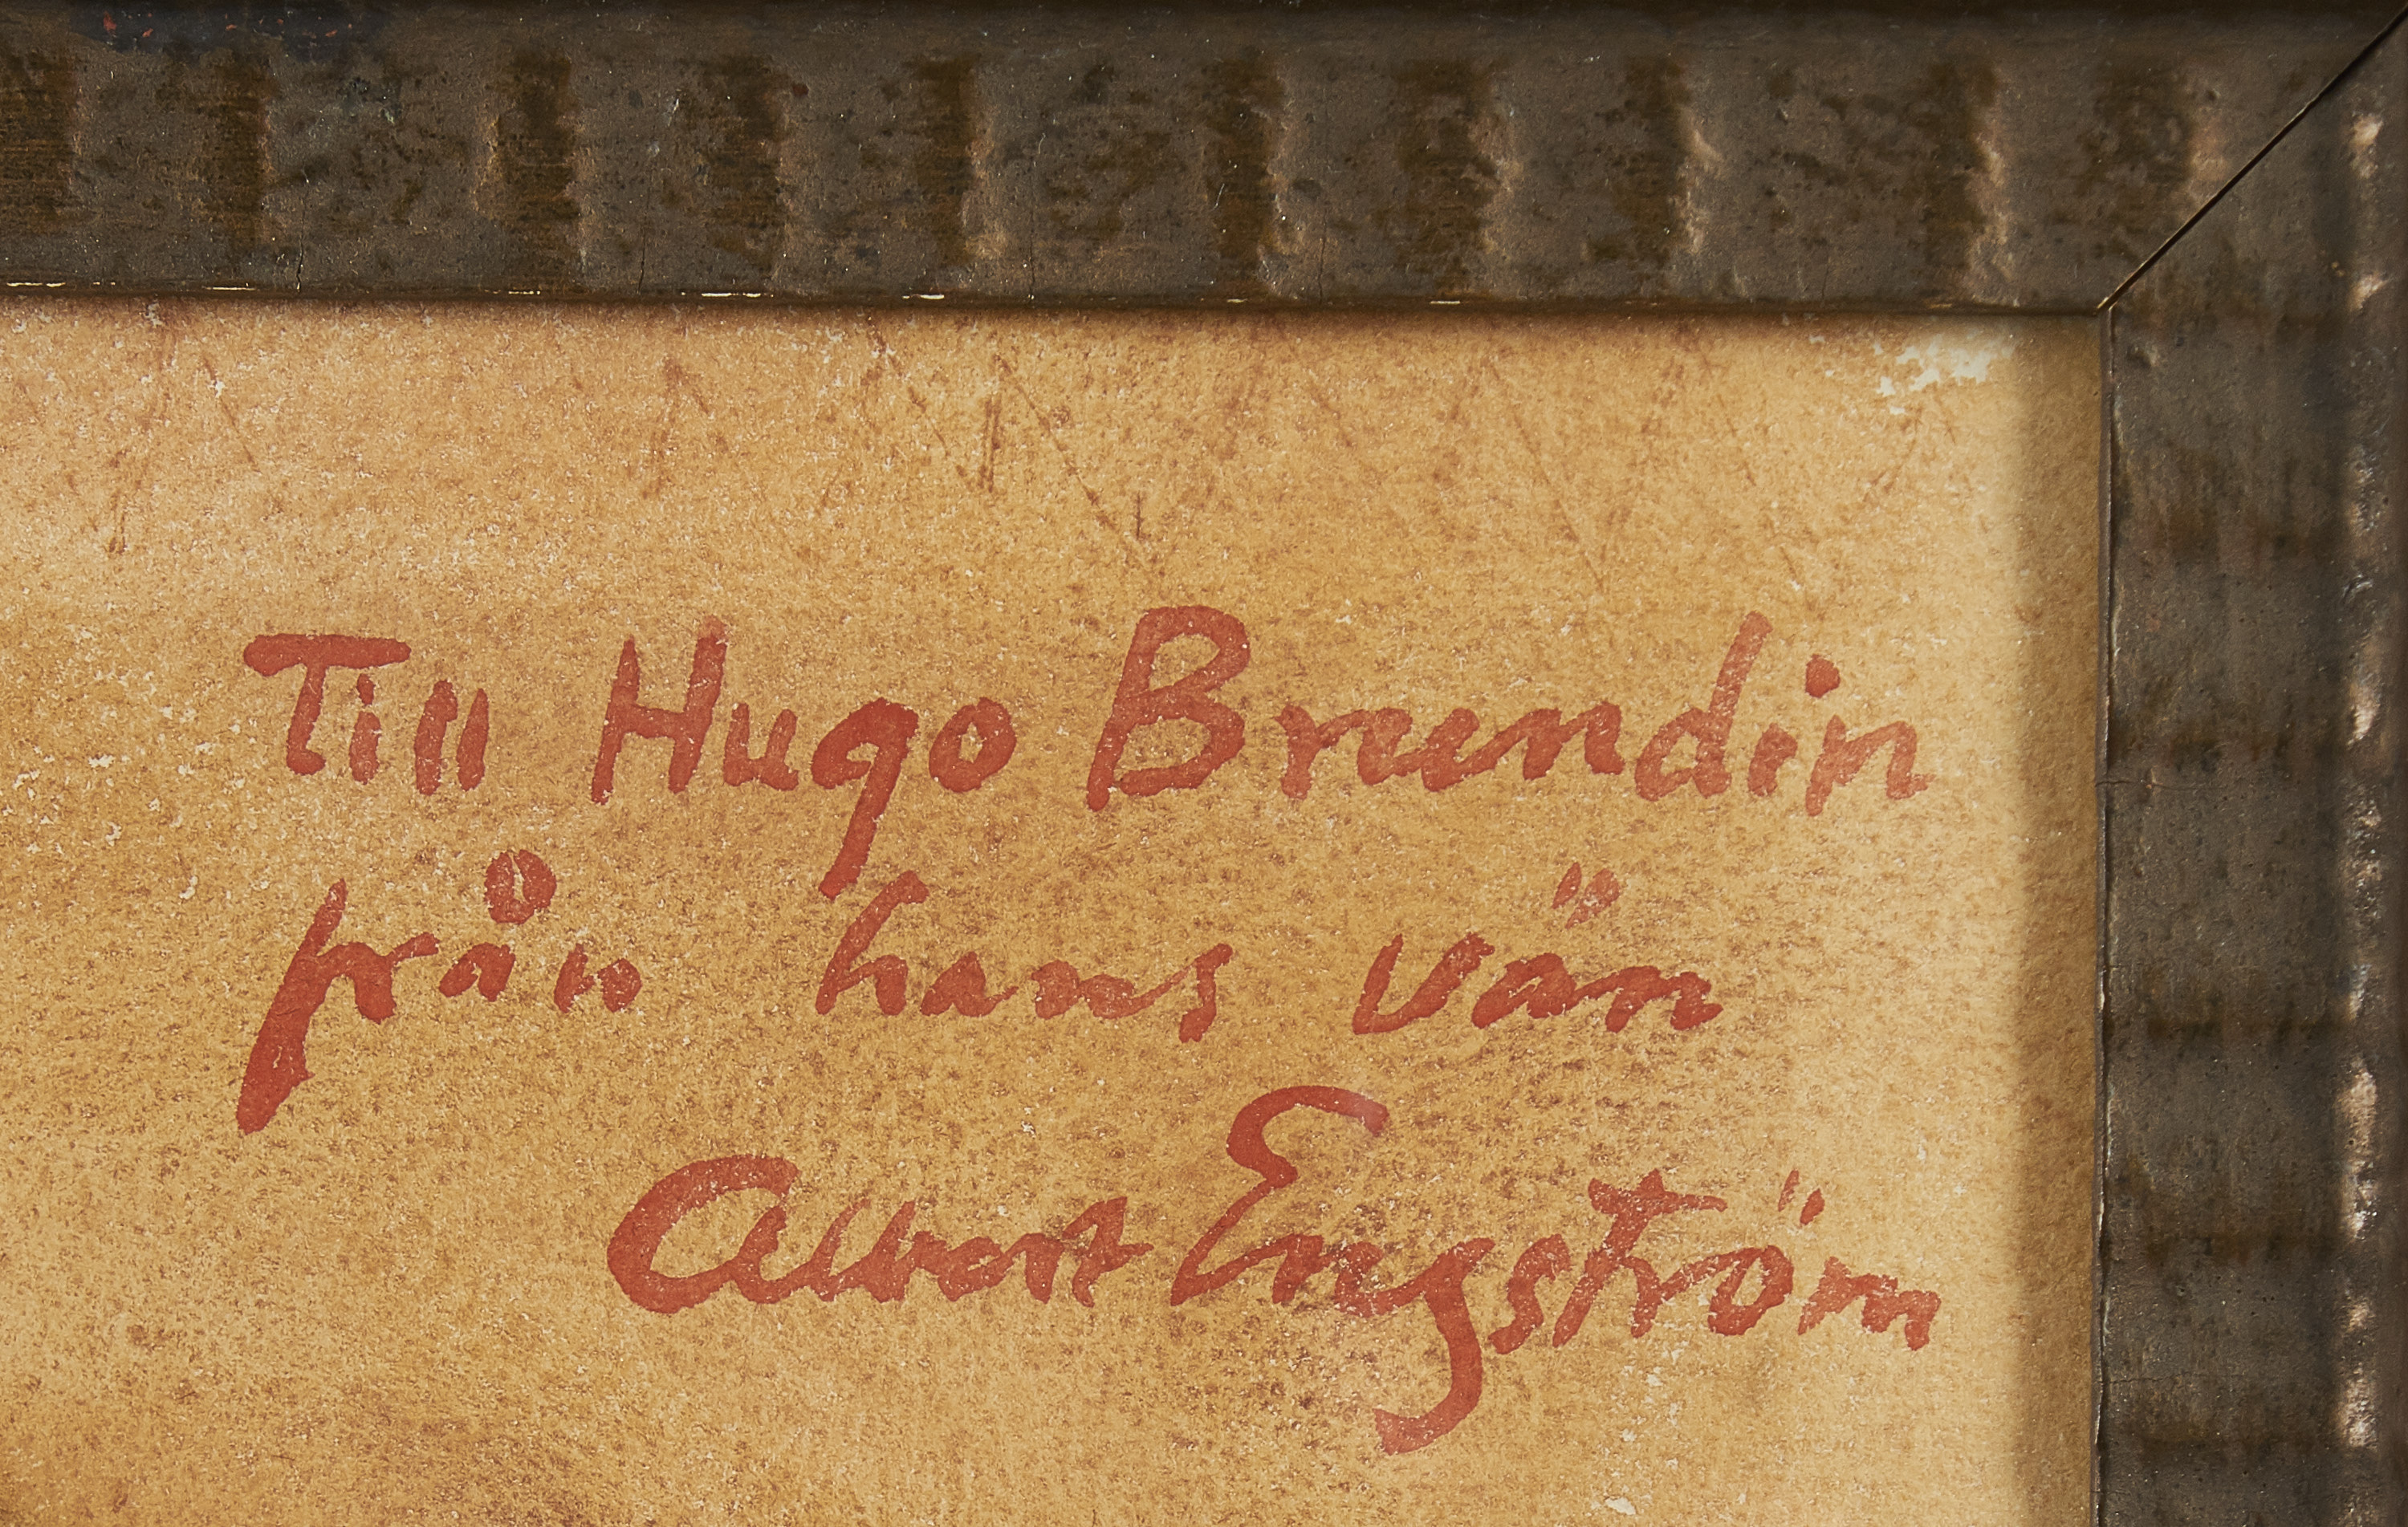 Till Hugo Brundin
från hans vän
Albert Engström